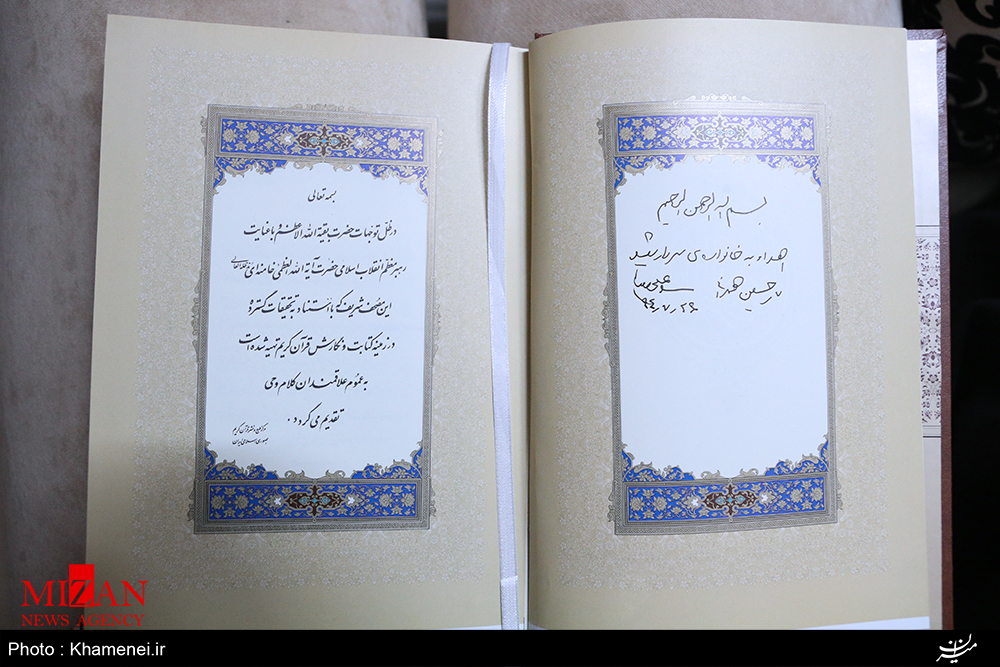 بسمه تعالی
در ظل توجهات حضرت بقیة الله الاعظم و با عنایت
رهبر معظم انقلاب اسلامی حضرت آیة الله العظمی خامنه ای مدظله العالی
این مصحف شریف که با استناد به تحقیقات گسترده
در زمینه کتابت و نگارش قرآن کریم تهیه شده است
به عموم علاقمندان کلام وحی
تقدیم می گردد.
مرکز طبع و نشر قرآن کریم
جمهوری اسلامی ایران
بسم الله الرحمن الرحیم
اهداء به خانواده‌ی سردار شهید
حسین همدانی
۹۴/۷/۲۶
MIZAN
NEWS AGENCY
Photo : Khamenei.ir
میزان